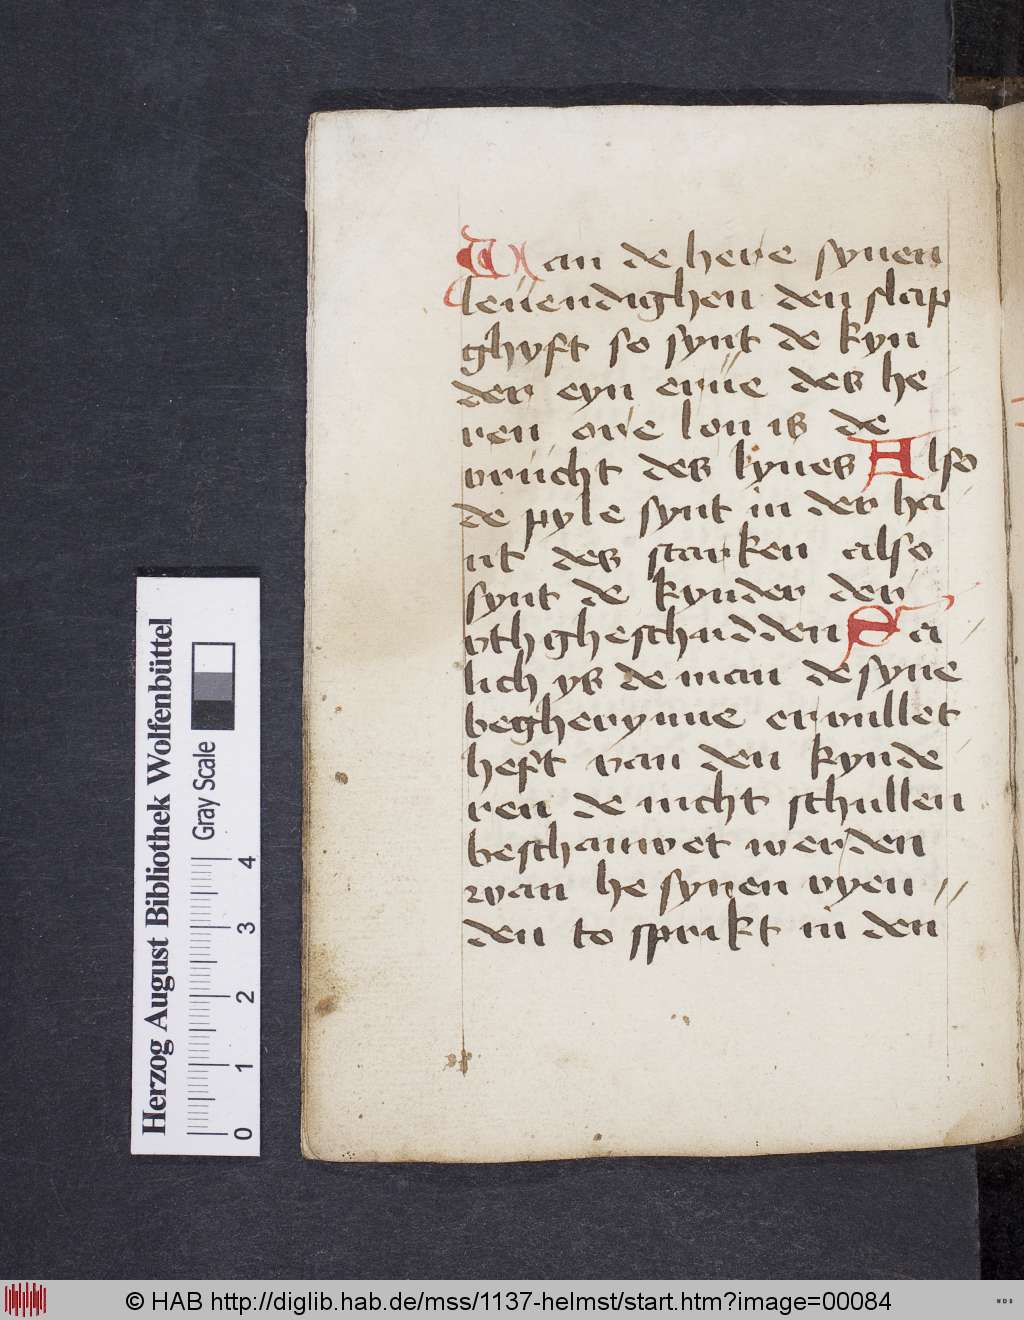 Wan de here synen
leuendighen den slap
ghyft so synt de kyn
der eyn erue des he
ren ore lon is de
vrucht des lyues Also
de pyle synt in der ha
nt des starken also
synt de kynder der
vthgheschudden Sa
lich ys de man de syne
begherynne ervullet
heft van den kynde
ren de nicht schullen
beschamet werden
wan he synen vyen
den to sprikt in den
Herzog August Bibliothek Wolfenbüttel
Gray Scale
0 1 2 3 4
© HAB http://diglib.hab.de/mss/1137-helmst/start.htm?image=00084